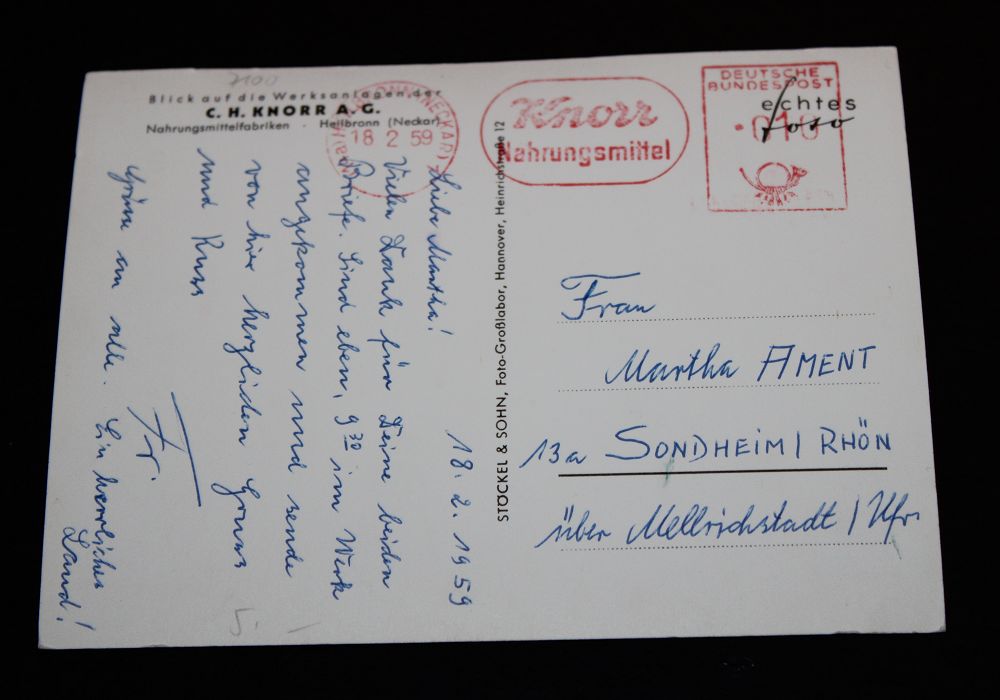 7100
Blick auf die Werksanlagen der
C. H. KNORR A. G.
Nahrungsmittelfabriken · Heilbronn (Neckar)
18 2 59
Knorr
Nahrungsmittel
DEUTSCHE
BUNDESPOST
010
echtes
foto
18. 2. 1959
Liebe Martha!
Vielen Dank für Deine beiden
Briefe. Sind eben, 9 30 im Werk
angekommen und sende
von hier herzlichen Gruss
und Kuss
Fr.
Grüsse an alle. Ein herrliches
Land!
STÖCKEL & SOHN, Foto-Großlabor, Hannover, Heinrichstraße 12
Frau
Martha AMENT
13a SONDHEIM / RHÖN
über Mellrichstadt / Ufr.
5.-